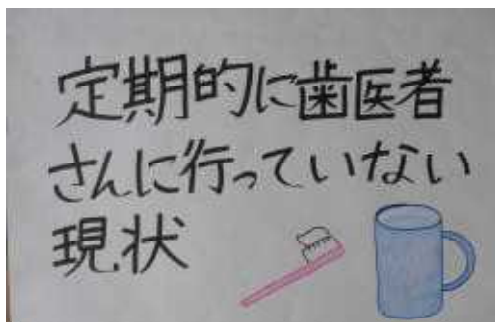 定期的に歯医者
さんに行っていない
現状